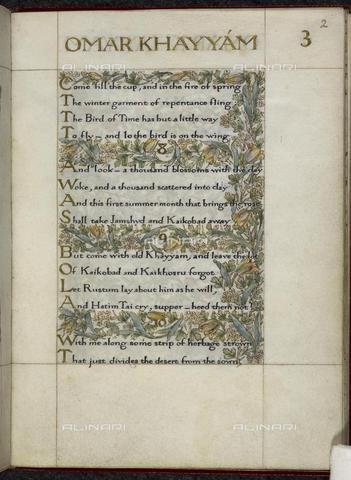 2
OMAR KHAYYÁM 3
Come fill the cup, and in the fire of spring
The winter garment of repentance fling
The Bird of Time has but a little way
To fly — and lo the bird is on the wing
8
And look — a thousand blossoms with the day
Woke, and a thousand scattered into clay
And this first summer month that brings the rose
Shall take Jamshyd and Kaikobad away
9
But come with old Khayyam, and leave the lot
Of Kaikobad and Kaikhosru forgot
Let Rustum lay about him as he will
And Hatim Tai cry, supper — heed them not!
10
With me along some strip of herbage strown
That just divides the desert from the sown
ALINARI
ALINARI
ALINARI
ALINARI